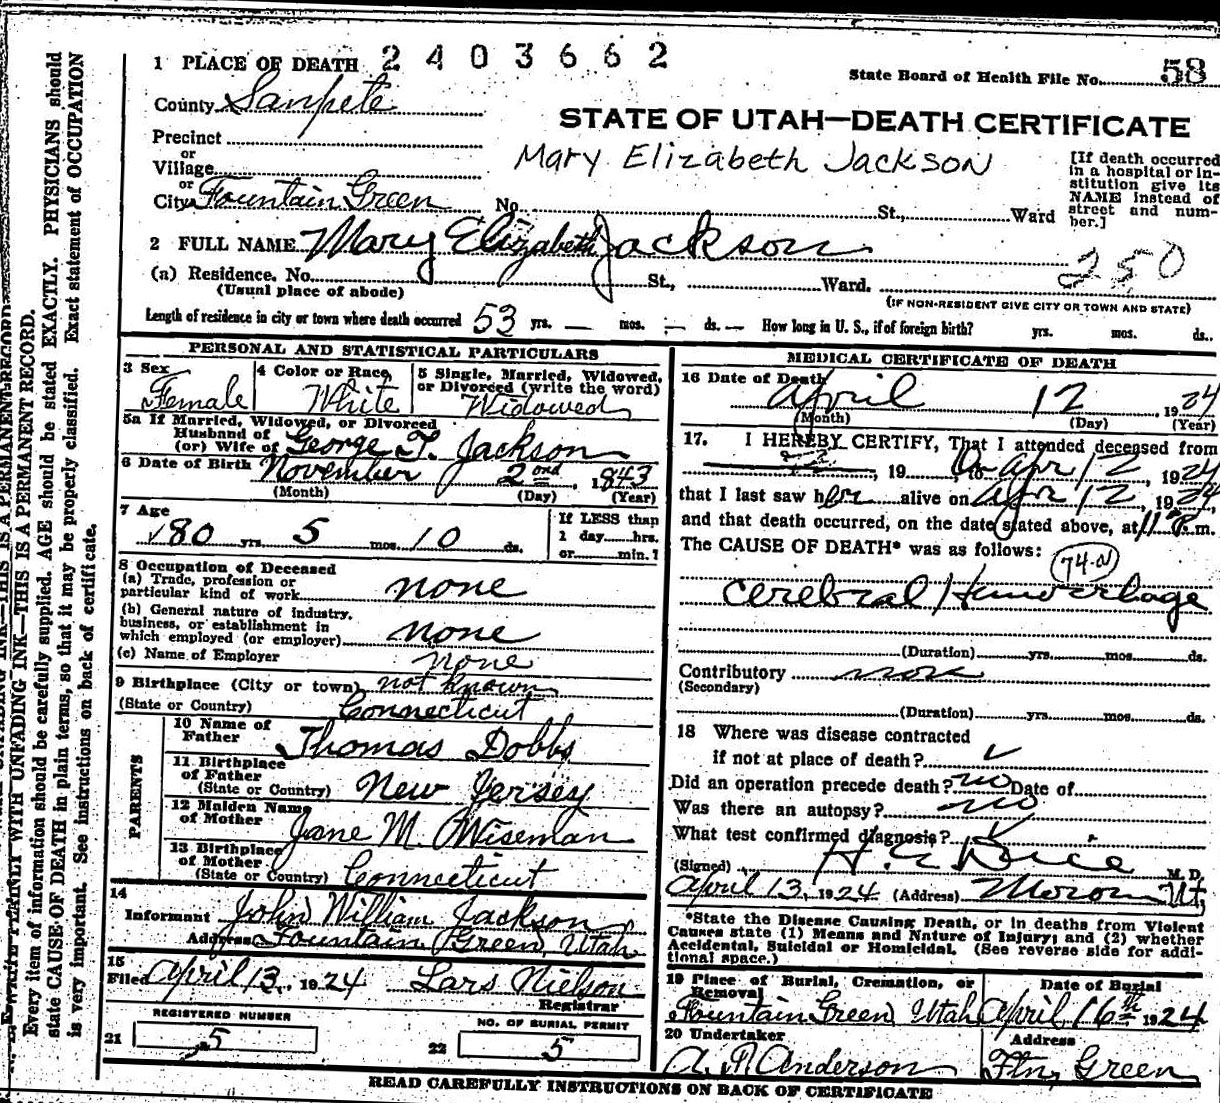 1 PLACE OF DEATH 2403662
State Board of Health File No. 58
County Sanpete
STATE OF UTAH—DEATH CERTIFICATE
Precinct
or
Village
or
City Fountain Green No. St., Ward
Mary Elizabeth Jackson
[If death occurred in a hospital or institution give its NAME instead of street and number.]
2 FULL NAME Mary Elizabeth Jackson
250
(a) Residence. No. St., Ward.
(Usual place of abode)
(IF NON-RESIDENT GIVE CITY OR TOWN AND STATE)
Length of residence in city or town where death occurred 53 yrs. — mos. — ds. — How long in U. S., if of foreign birth? yrs. mos. ds..
PERSONAL AND STATISTICAL PARTICULARS
3 Sex Female
4 Color or Race White
5 Single, Married, Widowed, or Divorced (write the word) Widowed
5a If Married, Widowed, or Divorced
Husband of
(or) Wife of George T. Jackson
6 Date of Birth November 2ond, 1843
(Month) (Day) (Year)
7 Age
80 yrs. 5 mos. 10 ds.
If LESS than
1 day hrs.
or min.?
8 Occupation of Deceased
(a) Trade, profession or
particular kind of work none
(b) General nature of industry,
business, or establishment in
which employed (or employer) none
(c) Name of Employer none
9 Birthplace (City or town) not known
(State or Country) Connecticut
PARENTS
10 Name of
Father Thomas Dobbs
11 Birthplace
of Father
(State or Country) New Jersey
12 Maiden Name
of Mother Jane M. Wiseman
13 Birthplace
of Mother
(State or Country) Connecticut
14
Informant John William Jackson
Address Fountain Green, Utah
15
Filed April 13, 1924 Lars Nielson
Registrar
REGISTERED NUMBER
21 5
NO. OF BURIAL PERMIT
22 5
MEDICAL CERTIFICATE OF DEATH
16 Date of Death
April 12 1924
(Month) (Day) (Year)
17. I HEREBY CERTIFY, That I attended deceased from
, 19 to Apr 12 1924
that I last saw her alive on Apr 12, 1924,
and that death occurred, on the date stated above, at 11 P.m.
The CAUSE OF DEATH* was as follows:
74-a
Cerebral Hemorrhage
(Duration) yrs. mos. ds.
Contributory none
(Secondary)
(Duration) yrs. mos. ds.
18 Where was disease contracted
if not at place of death?
Did an operation precede death? no Date of
Was there an autopsy? no
What test confirmed diagnosis?
(Signed) M. D.
April 13, 1924 (Address) Moroni Ut,
*State the Disease Causing Death, or in deaths from Violent
Causes state (1) Means and Nature of Injury; and (2) whether
Accidental, Suicidal or Homicidal. (See reverse side for addi-
tional space.)
19 Place of Burial, Cremation, or
Removal
Fountain Green Utah
Date of Burial
April 16th 1924
20 Undertaker
A. P. Anderson
Address
Ftn, Green
READ CAREFULLY INSTRUCTIONS ON BACK OF CERTIFICATE
WITH UNFADING INK—THIS IS A PERMANENT RECORD.
Every item of information should be carefully supplied. AGE should be stated EXACTLY. PHYSICIANS should
state CAUSE OF DEATH in plain terms, so that it may be properly classified. Exact statement of OCCUPATION
is very important. See instructions on back of certificate.